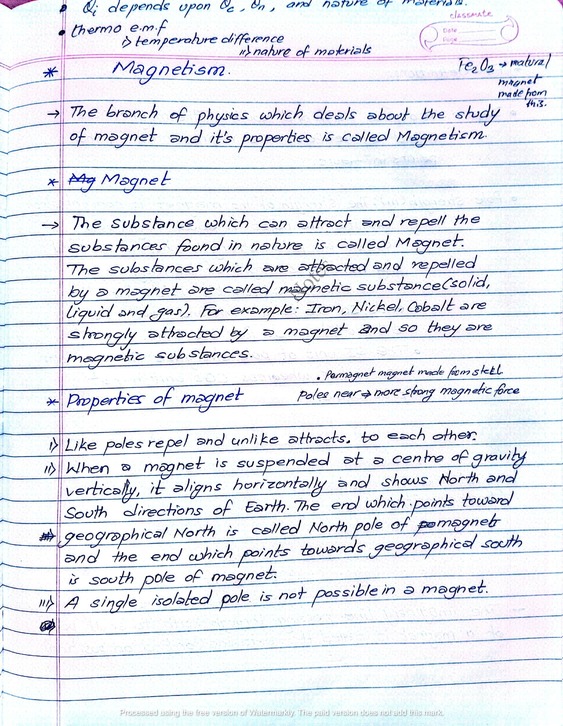 • θi depends upon θc, θn, and nature of materials.
classmate
Date
Page
• thermo e.m.f
i> temperature difference
ii> nature of materials
* Magnetism.
Fe2O3 → natural
magnet
made from
this.
→ The branch of physics which deals about the study
of magnet and it's properties is called Magnetism.
* Mg Magnet
→ The substance which can attract and repell the
substances found in nature is called Magnet.
The substances which are attracted and repelled
by a magnet are called magnetic substance(solid,
liquid and gas). For example: Iron, Nickel, Cobalt are
strongly attracted by a magnet and so they are
magnetic substances.
• Parmagnet magnet made from steel
* Properties of magnet
Poles near → more strong magnetic force
i> Like poles repel and unlike attracts. to each other.
ii> When a magnet is suspended at a centre of gravity
vertically, it aligns horizontally and shows North and
South directions of Earth. The end which points toward
geographical North is called North pole of magnet
and the end which points towards geographical south
is south pole of magnet.
iii> A single isolated pole is not possible in a magnet.
Processed using the free version of Watermarkly. The paid version does not add this mark.